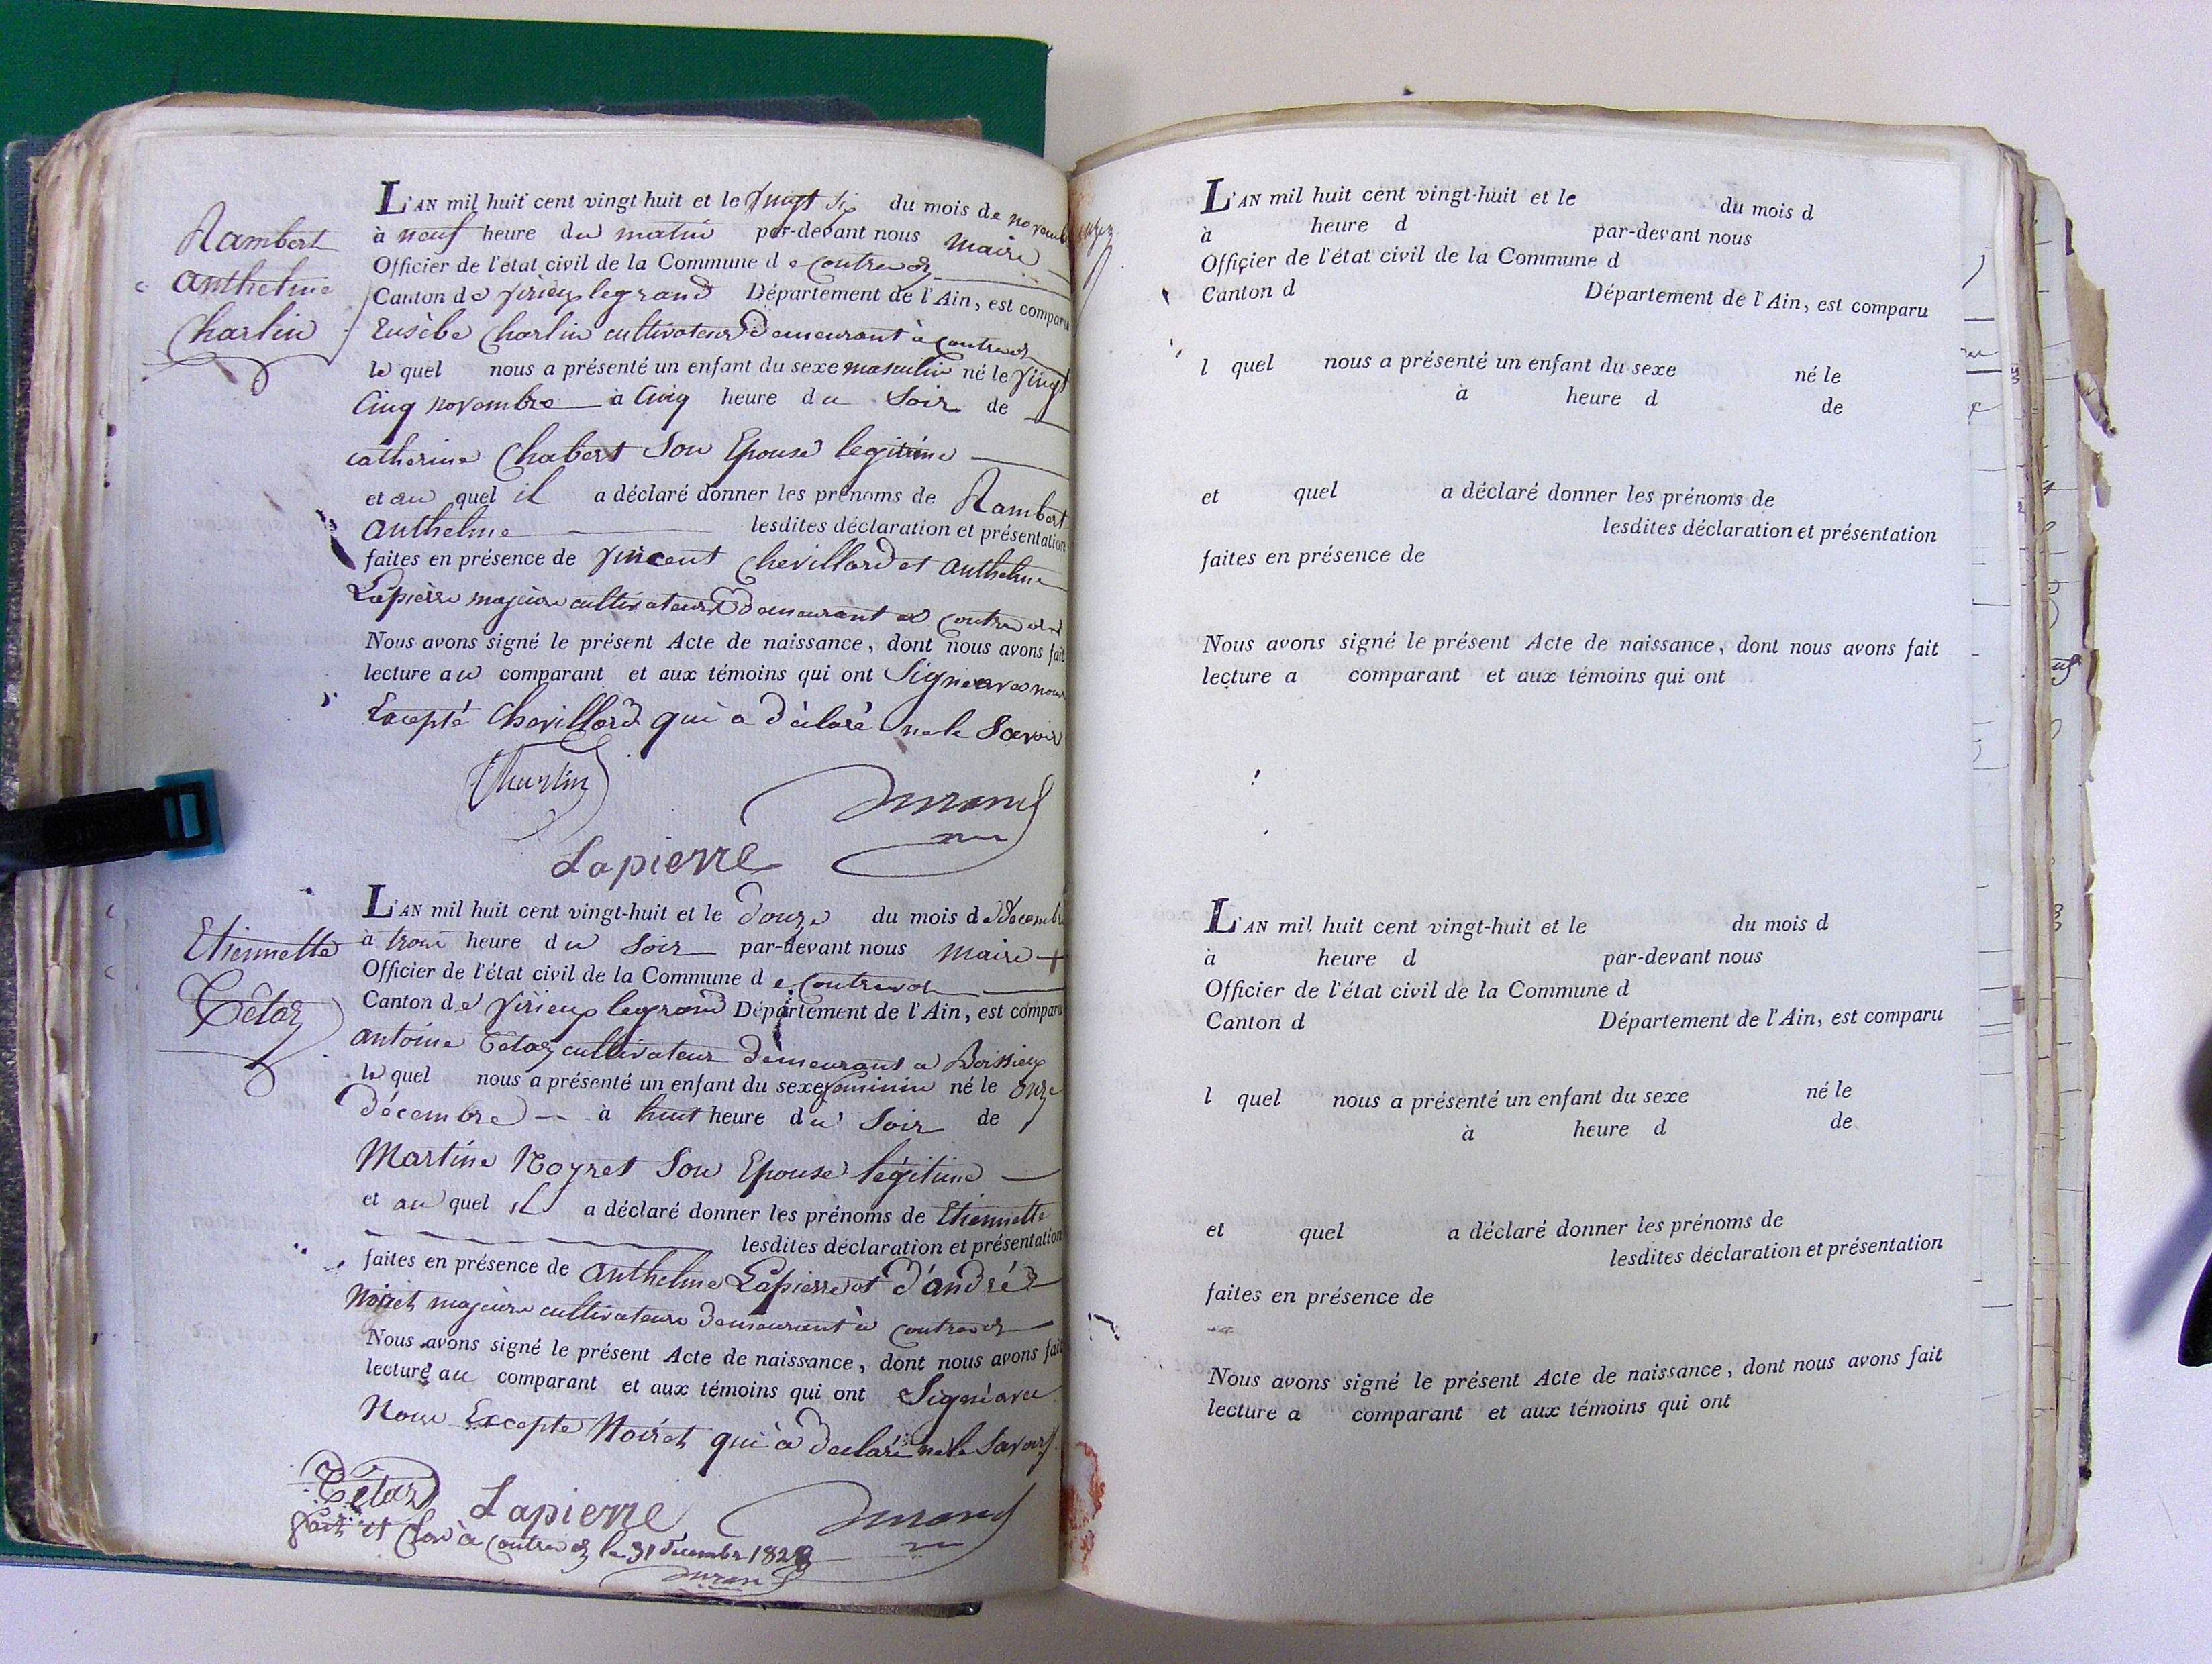 Rambert
Anthelme
Charlin
L'AN mil huit cent vingt huit et le vingt six du mois de novembre
à neuf heure du matin par-devant nous Maire
Officier de l'état civil de la Commune de Contrevoz
Canton de Virieux legrand Département de l'Ain, est comparu
Eusèbe Charlin cultivateur demeurant à Contrevoz
le quel nous a présenté un enfant du sexe masculin né le vingt
Cinq novembre à Cinq heure du Soir de
catherine Chabert Son Epouse legitime
et au quel il a déclaré donner les prénoms de Rambert
Anthelme lesdites déclaration et présentation
faites en présence de Vincent Chevillard et Anthelme
Lapierre majeurs cultivateurs demeurant à Contrevoz
Nous avons signé le présent Acte de naissance, dont nous avons fait
lecture au comparant et aux témoins qui ont Signé avec nous
Excepté Chevillard qui a déclaré ne le Savoir
Charlin
Durand
Lapierre
Etiennette
Tétaz
L'AN mil huit cent vingt-huit et le douze du mois de décembre
à trois heure du Soir par-devant nous Maire
Officier de l'état civil de la Commune de Contrevoz
Canton de Virieux legrand Département de l'Ain, est comparu
Antoine Tetaz cultivateur demeurant a Boissieux
le quel nous a présenté un enfant du sexe feminin né le onze
décembre à huit heure du Soir de
Martine Noyret Son Epouse légitime
et au quel il a déclaré donner les prénoms de Etiennette
lesdites déclaration et présentation
faites en présence de Anthelme Lapierre et d'andré
Noiret majeurs cultivateurs demeurant à Contrevoz
Nous avons signé le présent Acte de naissance, dont nous avons fait
lecture au comparant et aux témoins qui ont Signé avec
Nous Excepté Noiret qui à déclaré ne le Savoir
Tétaz Lapierre Durand
fait et Clos à Contrevoz le 31 décembre 1828
Durand
L'AN mil huit cent vingt-huit et le du mois d
à heure d par-devant nous
Officier de l'état civil de la Commune d
Canton d Département de l'Ain, est comparu
l quel nous a présenté un enfant du sexe né le
à heure d de
et quel a déclaré donner les prénoms de
lesdites déclaration et présentation
faites en présence de
Nous avons signé le présent Acte de naissance, dont nous avons fait
lecture a comparant et aux témoins qui ont
L'AN mil huit cent vingt-huit et le du mois d
à heure d par-devant nous
Officier de l'état civil de la Commune d
Canton d Département de l'Ain, est comparu
l quel nous a présenté un enfant du sexe né le
à heure d de
et quel a déclaré donner les prénoms de
lesdites déclaration et présentation
faites en présence de
Nous avons signé le présent Acte de naissance, dont nous avons fait
lecture a comparant et aux témoins qui ont